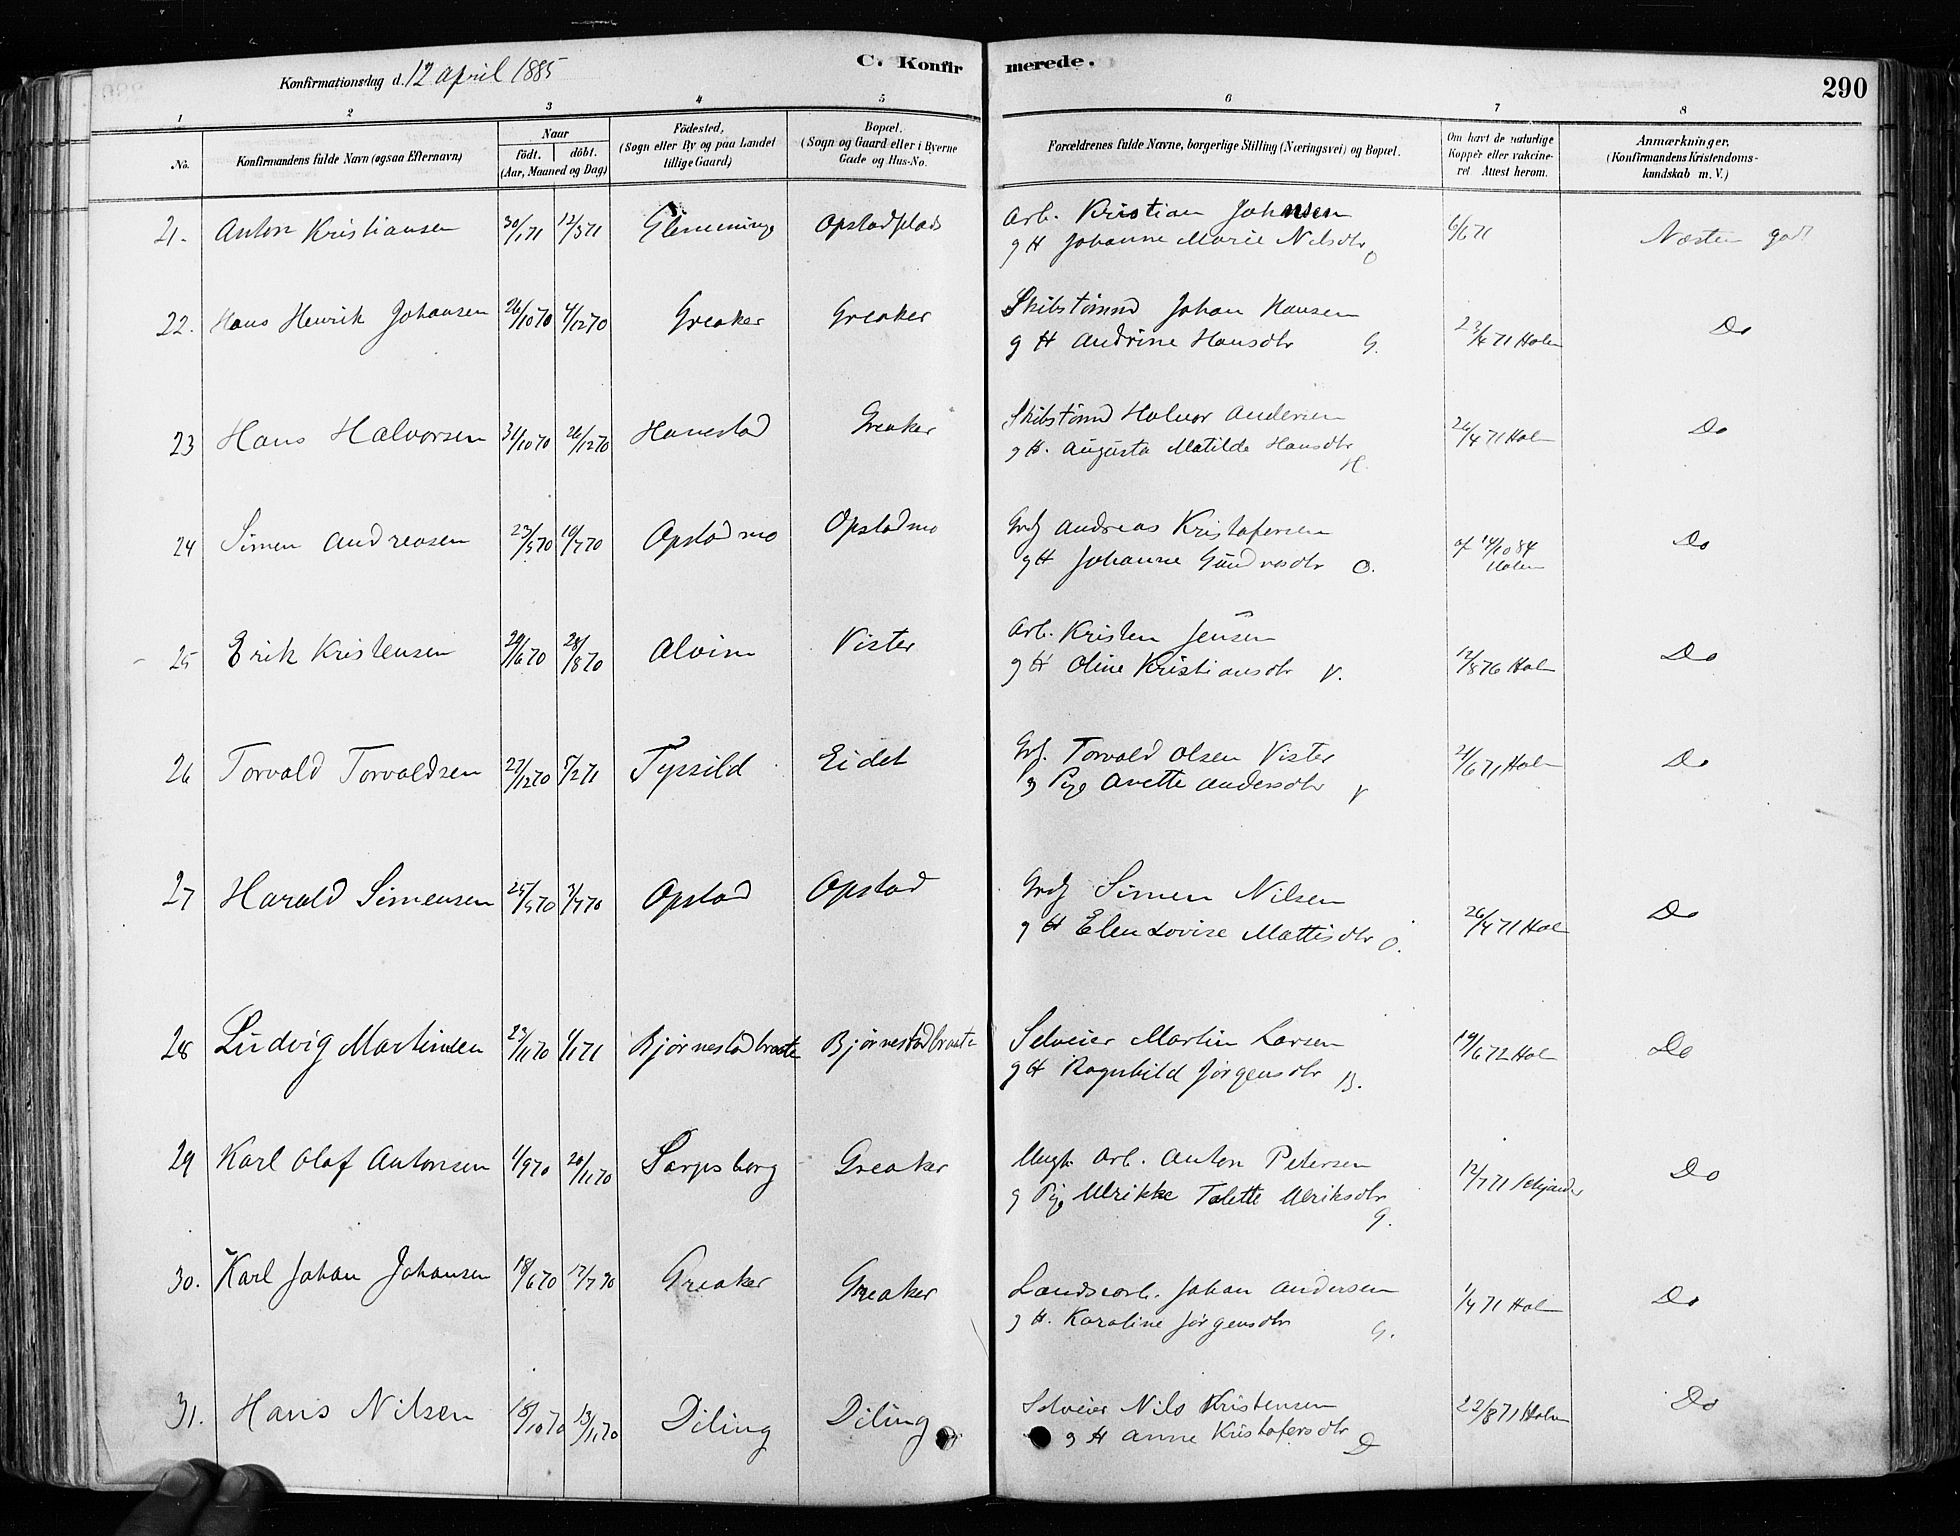 Konfirmationsdag d. 12 april 1885
C. Konfirmerede.
290
1 2 3 4 5 6 7 8
No. Konfirmandens fulde Navn (ogsaa Efternavn) Naar födt. döbt. (Aar, Maaned og Dag) Födested, (Sogn eller By og paa Landet tillige Gaard) Bopæl. (Sogn og Gaard eller i Byerne Gade og Hus-No. Forældrenes fulde Navne, borgerlige Stilling (Næringsvei) og Bopæl. Om havt de naturlige Kopper eller vakcineret Attest herom. Anmærkninger. (Konfirmandens Kristendomskundskab m. V.)
21. Anton Kristiansen 30/1 71 12/3 71 Glemminge Opstadplads Arb. Kristian Johnsen 6/6 71 Næsten godt
g H Johanne Marie Nilsdtr O
22. Hans Henrik Johansen 26/10 70 4/12 70 Greaker Greaker Skibstømmd Johan Hansen 23/4 71 Holm Do
g H Andrine Hansdtr G.
23 Hans Halvorsen 31/10 70 26/12 70 Hanestad Greaker Skibstømd Halvor Andersen 26/4 71 Holm Do
g H. Augusta Matilde Hansdtr H.
24 Simen Andreasen 23/5 70 10/7 70 Opstadmo Opstadmo Grdj Andreas Kristofersen af 14/10 84 Holm Do
g H Johanne Gundrosdtr O.
25 Erik Kristensen 29/6 70 28/8 70 Alvim Vister Arb. Kristen Jensen 12/8 76 Holm Do
g H Oline Kristiansdtr V.
26 Torvald Torvaldsen 27/12 70 5/2 71 Tyssild Eidet Grdj. Torvald Olsen Vister 21/6 71 Holm Do
g Pige Anette Andersdtr V
27 Harald Simensen 25/5 70 3/7 70 Opstad Opstad Grdj Simen Nilsen 26/4 71 Holm Do
g H Elen Lovise Mattisdtr O.
28 Ludvig Martinsen 23/11 70 1/1 71 Bjørnestadbraate Bjørnestadbraate Selveier Martin Larsen 19/6 72 Holm Do
g H Ragnhild Jørgensdtr B.
29 Karl Olaf Antonsen 1/9 70 20/11 70 Sarpsborg Greaker Ungk. Arb. Anton Petersen 12/7 71 Do
g Pige Ulrikke Talette Ulriksdtr G.
30. Karl Johan Johansen 18/6 70 17/7 70 Greaker Greaker Landsearb. Johan Andersen 1/4 71 Holm Do
g H. Karoline Jørgensdtr G.
31. Hans Nilsen 18/10 70 13/11 70 Diling Diling Selveier Nils Kristensen 22/8 71 Holm Do
g H Anne Kristofersdtr D